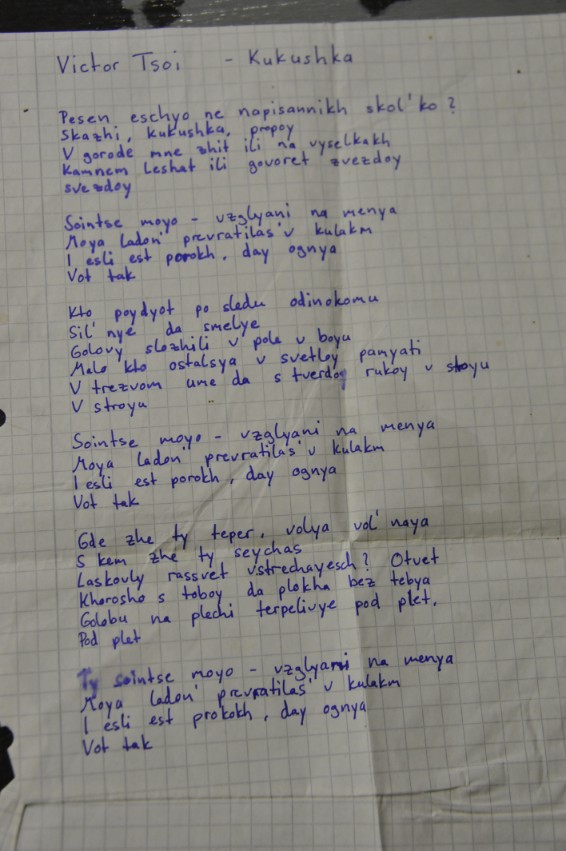 Victor Tsoi - Kukushka
Pesen eschyo ne napisannikh skol'ko?
Skazhi, kukushka, propoy
V gorode mne zhit ili na vyselkakh
Kamnem Leshat ili govoret zvezdoy
svezdoy
Sointse moyo - vzglyani na menya
Moya ladon' prevratilas' v kulakm
I esli est porokh, day ognya
Vot tak
Kto poydyot po sledu odinokomu
Sil'nye da smelye
Golovy slozhili v pole v boyu
Malo kto ostalsya v svetloy pamyati
V trezvom ume da s tverdoy rukoy v stoyu
V stroyu
Sointse moyo - vzglyani na menya
Moya ladon' prevratilas' v kulakm
I esli est porokh, day ognya
Vot tak
Gde zhe ty teper, volya vol'naya
S kem zhe ty seychas
Laskovly rassvet vstrechayesch? Otvet
Khorosho s toboy da plokha bez tebya
Golobu na plechi terpelivye pod plet,
Pod plet
Ty sointse moyo - vzglyani na menya
Moya ladon' prevratilas' v kulakm
I esli est prokokh, day ognya
Vot tak